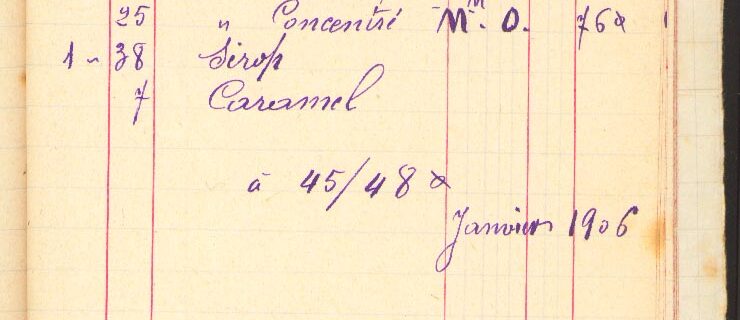 25 " Concentré M<sup>n</sup>. O. 76°
1 " 38 Sirop
7 Caramel
à 45/48°
Janvier 1906